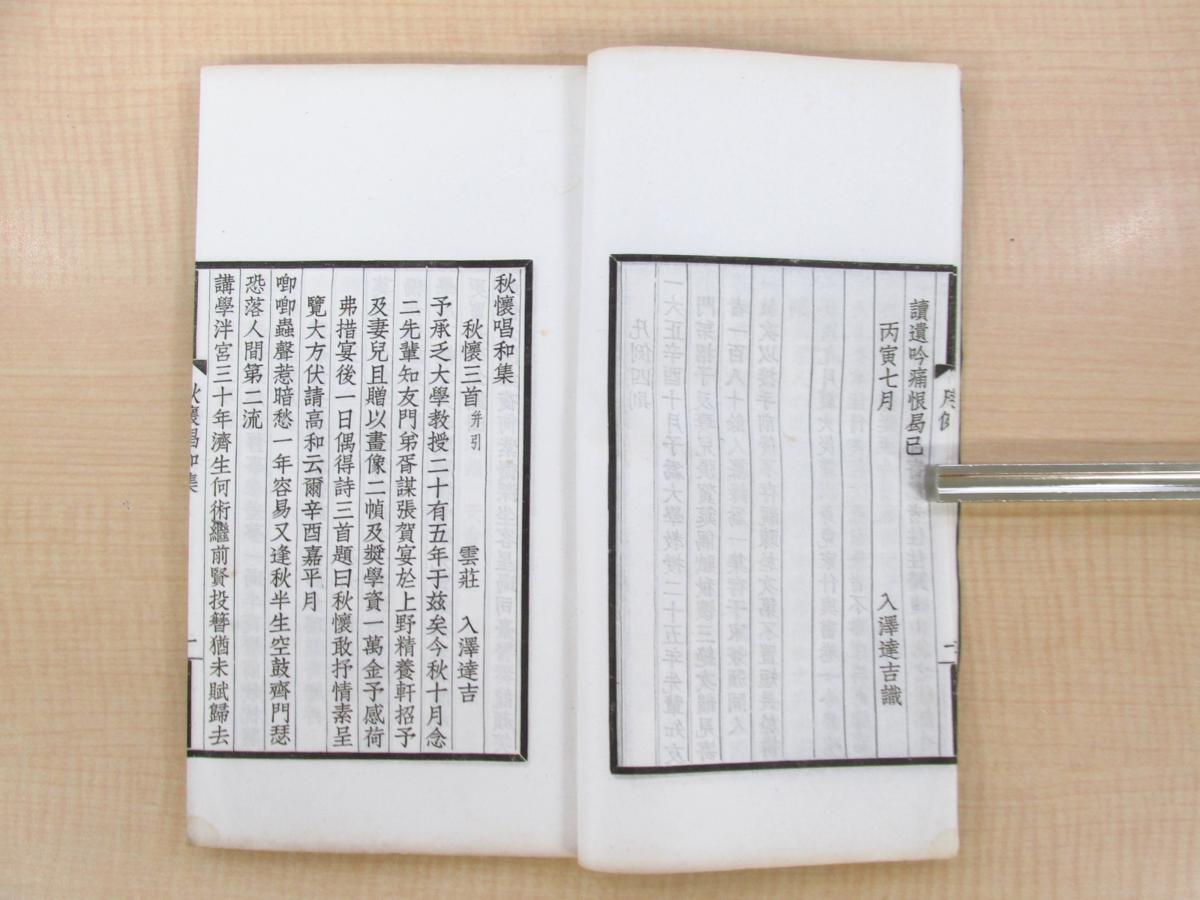 讀遺吟痛恨曷已
丙寅七月
入澤達吉識
秋懷唱和集
秋懷三首并引
雲莊 入澤達吉
予承乏大學教授二十有五年于兹矣今秋十月念
二先輩知友門弟胥謀張賀宴於上野精養軒招予
及妻兒且贈以畫像二幀及奬學資一萬金予感荷
弗措宴後一日偶得詩三首題曰秋懷敢抒情素呈
覽大方伏請高和云爾辛酉嘉平月
喞喞蟲聲惹暗愁一年容易又逢秋半生空鼓齊門瑟
恐落人間第二流
講學泮宮三十年濟生何術繼前賢投簪猶未賦歸去
秋懷唱和集
一